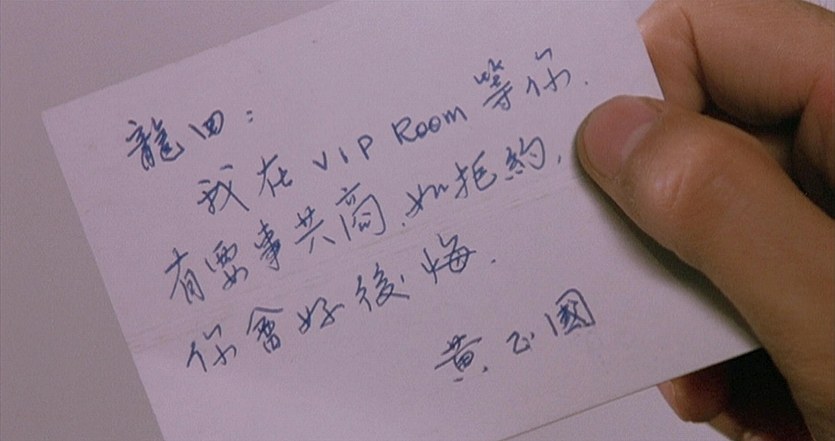 龍四：
我在 VIP Room 等你.
有要事共商.如拒約,
你會好後悔.
黃正國